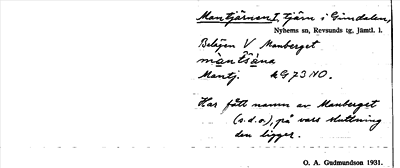 Mantjärnen I, tjärn i Gimdalen,
Nyhems sn, Revsunds tg, Jämtl. l.
Belägen V Manberget
Mantj. AG 73 NO.
Har fått namn av Manberget
(s.d.o), på vars sluttning
den ligger.
O. A. Gudmundson 1931.